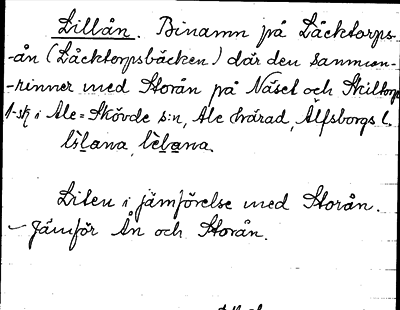 Lillån. Binamn på Läcktorps-
-ån (Läcktorpsbäcken) där den samman-
-rinner med Storån på Näset och Skiltorp
1-sk i Ale-Skövde s:n, Ale härad, Älfsborgs l.
Liten i jämförelse med Storån.
Jämför Ån och Storån.